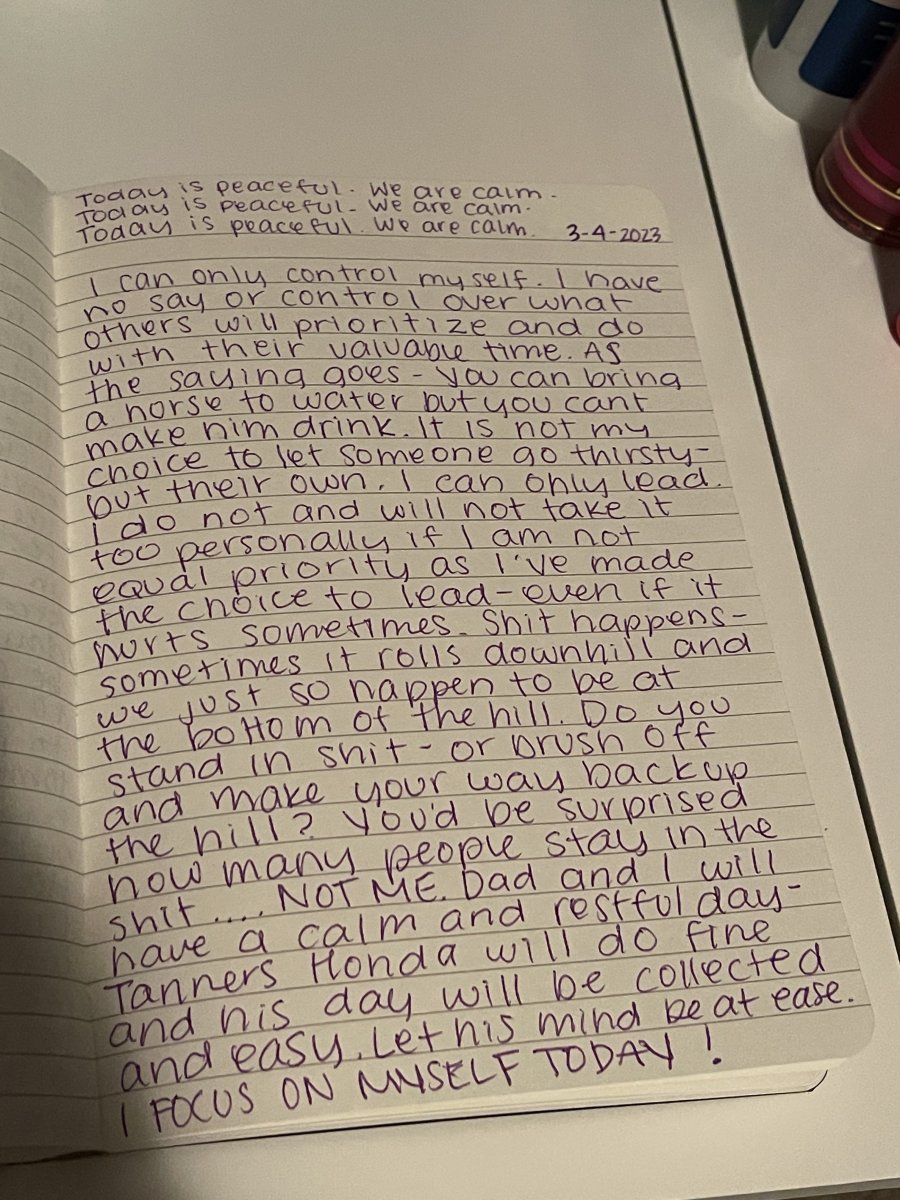 Today is peaceful. We are calm.
Today is peaceful. We are calm.
Today is peaceful. We are calm. 3-4-2023
I can only control myself. I have
no say or control over what
others will prioritize and do
with their valuable time. As
the saying goes - you can bring
a horse to water but you cant
make him drink. It is not my
choice to let someone go thirsty-
but their own. I can only lead.
I do not and will not take it
too personally if I am not
equal priority as I've made
the choice to lead - even if it
hurts sometimes. Shit happens-
sometimes it rolls downhill and
we just so happen to be at
the bottom of the hill. Do you
stand in shit - or brush off
and make your way back up
the hill? You'd be surprised
how many people stay in the
shit .... NOT ME. Dad and I will
have a calm and restful day-
Tanners Honda will do fine
and his day will be collected
and easy. Let his mind be at ease.
I FOCUS ON MYSELF TODAY!